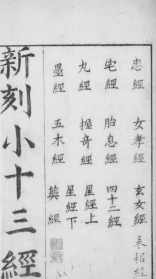 忠經 女孝經 玄女經
宅經 胎息經 四十二經
丸經 握奇經 星經上
星經下
墨經 五木經
新刻小十三經